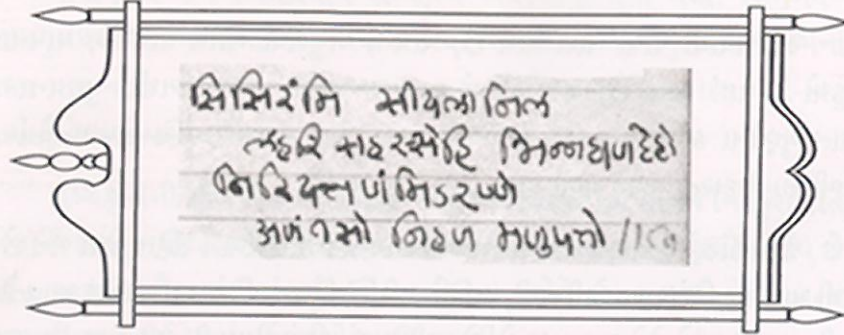 સિસિરંમિ સીયલાનિલ
લહરિ સહસ્સેહિ ભિન્નઘણ દેહો
તિરિયત્તણંમિઽરણ્ણે
અણંતસો નિહણ મણુપત્તો